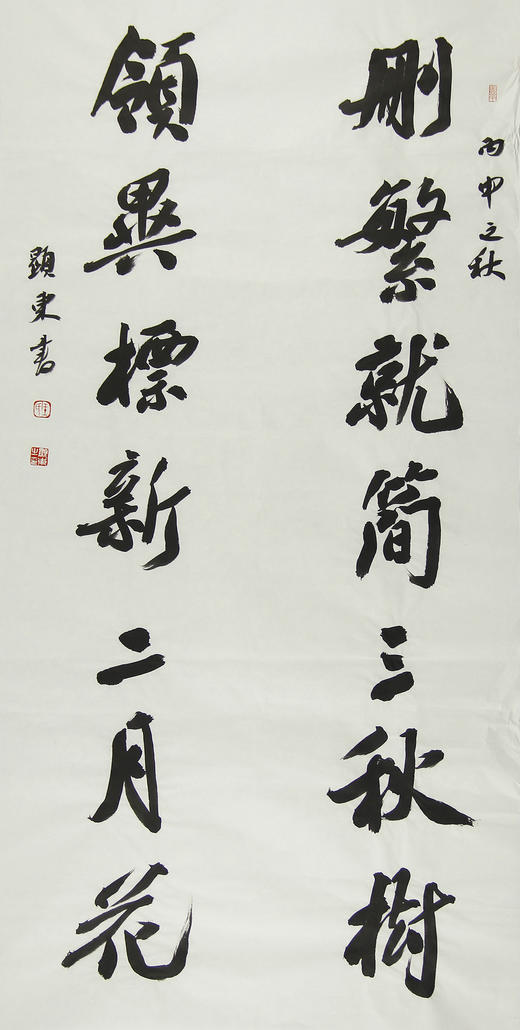 丙申之秋
刪繁就簡三秋樹
領異標新二月花
顯東書